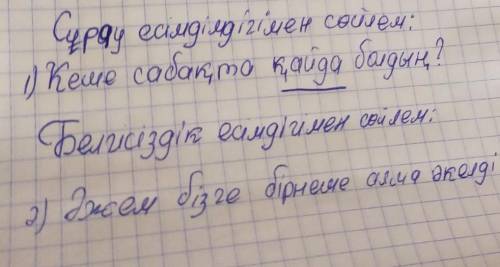 Сұрау есімділдігімен сөйлем:
1) Кеше сабақта қайда болдың?
Белгисіздік есімдігимен сөйлем:
2) Әжем бізге бірнеше алма әкелді